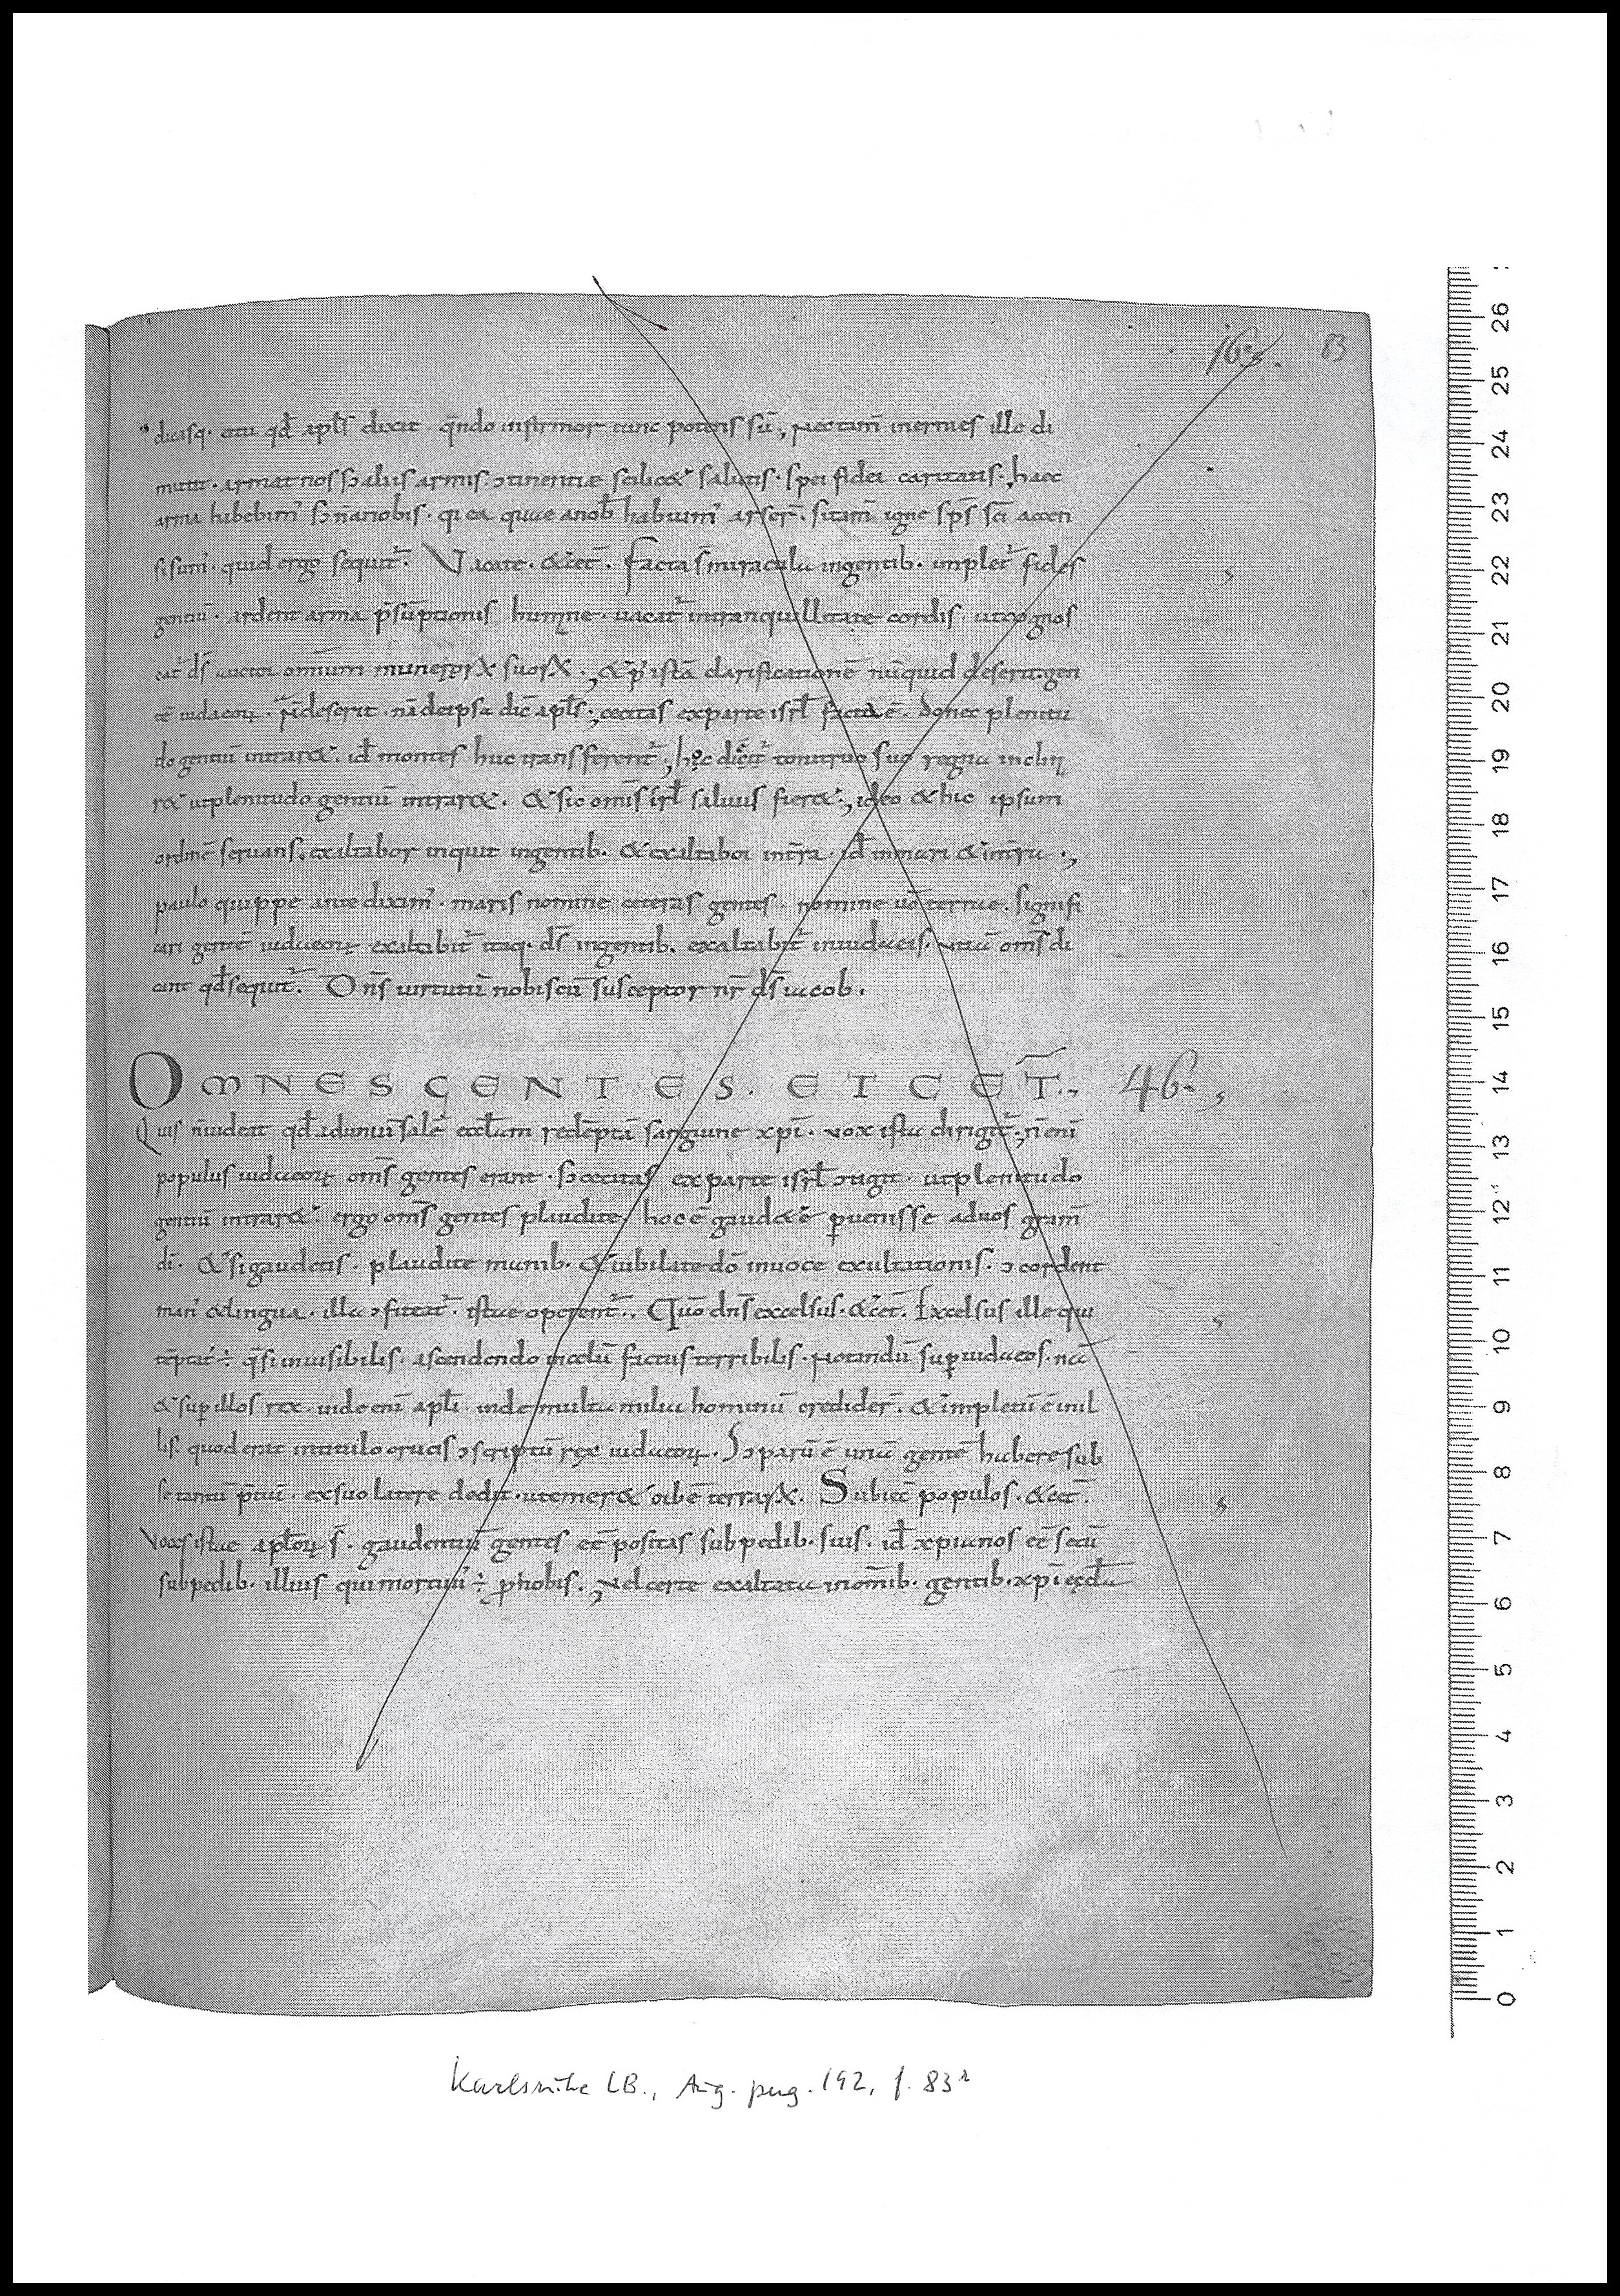 163. 83
dicasq· etu qđ apłs dixit q̄ndo infirmor tunc potens sū, Nectam̄ inermes ille di
mittit· armat nos s; aliis armis ↄtinentiæ scilic& salutis· spei fidei caritatis· haec
arma habebim' s; n̄ anobis· qi ea quae anob habuim' arser̄· si tam̄ igne sp̄s sc̄i accen
si sum'· quid ergo sequit̄· Vacate· &cet̄· Facta s̄ miracula ingentib· implet̄ fides
gentiū· ardent arma p̄sūptionis humane· uacat̄ intranquillitate cordis· ut cognos
cat̄ ds̄ auctor omnium munerorum suorum· & p' istā clarificationē nūquid deserit gen
tē iudaeoꝝ· N̄ deserit· nā deipsa dic̄ apłs; cecitas exparte isrł facta ē· donec plenitu
do gentiū intrar&· id montes huc transferent̄, hoc dicit̄ tonitruo suo regna inclin
r& ut plenitudo gentiū intrar&· & sic omīs isrł saluus fier&·, ideo & hic ipsum
ordinē seruans· exaltabor inquit ingentib· & exaltabor intr̄a· id inmari & intr̄a·,
paulo quippe ante dixim'· maris nomine ceteras gentes· nomine uō terrae· signifi
cari gentē iudaeoꝝ exaltabit̄ itaq· ds̄ ingentib· exaltabit̄ iniudaeis· Nam om̄s di
cant qđ sequit̄· Dn̄s uirtutū nobiscū susceptor nr̄ ds̄ iacob·
OMNES GENTES· ET CET̄· 46·
Quis n̄ uideat qđ aduniuersalē eccłam redēptā sanguine xp̄i· vox ista dirigit̄; n̄ eni
populus iudaeoꝝ om̄s gentes erant· s; cecitas exparte isrł ↄtigit· utplenitudo
gentiū intrar&· ergo om̄s gentes plaudite· hoc ē gaud&ē peruenisse aduos gram̄
di· & si gaudetis· plaudite manib· & iubilate dō inuoce exultationis· ↄcordent
man' & lingua· illa ↄfiteat̄· istae operent̄· Qūo dn̄s excelsus· &cet̄· Excelsus ille qui
tēptat' ÷ q̄si inuisibilis· ascendendo incelū factus terribilis· Notandū sup iudaeos· nā
& sup illos rex· inde enī apłi· inde multa milia hominū credider̄· & impletū ē inil
lis· quod erat intitulo crucis ↄscriptū rex iudaeoꝝ· S; parū ē unā gentē habere sub
se tantū p̄tiū· exsuo latere dedit· ut emer& orbē terrarum· Subiec̄ populos· &cet̄·
Voces istae apłoꝝ s̄· gaudentiū gentes eē positas subpedib· suis· id xpianos eē secū
subpedib· illius qui mortuus ÷ p nobis· Ad certe exaltata inomīb· gentib· xp̄i eccła
Karlsruhe LB., Aug. perg. 192, f. 83r
26
25
24
23
22
21
20
19
18
17
16
15
14
13
12
11
10
9
8
7
6
5
4
3
2
1
0